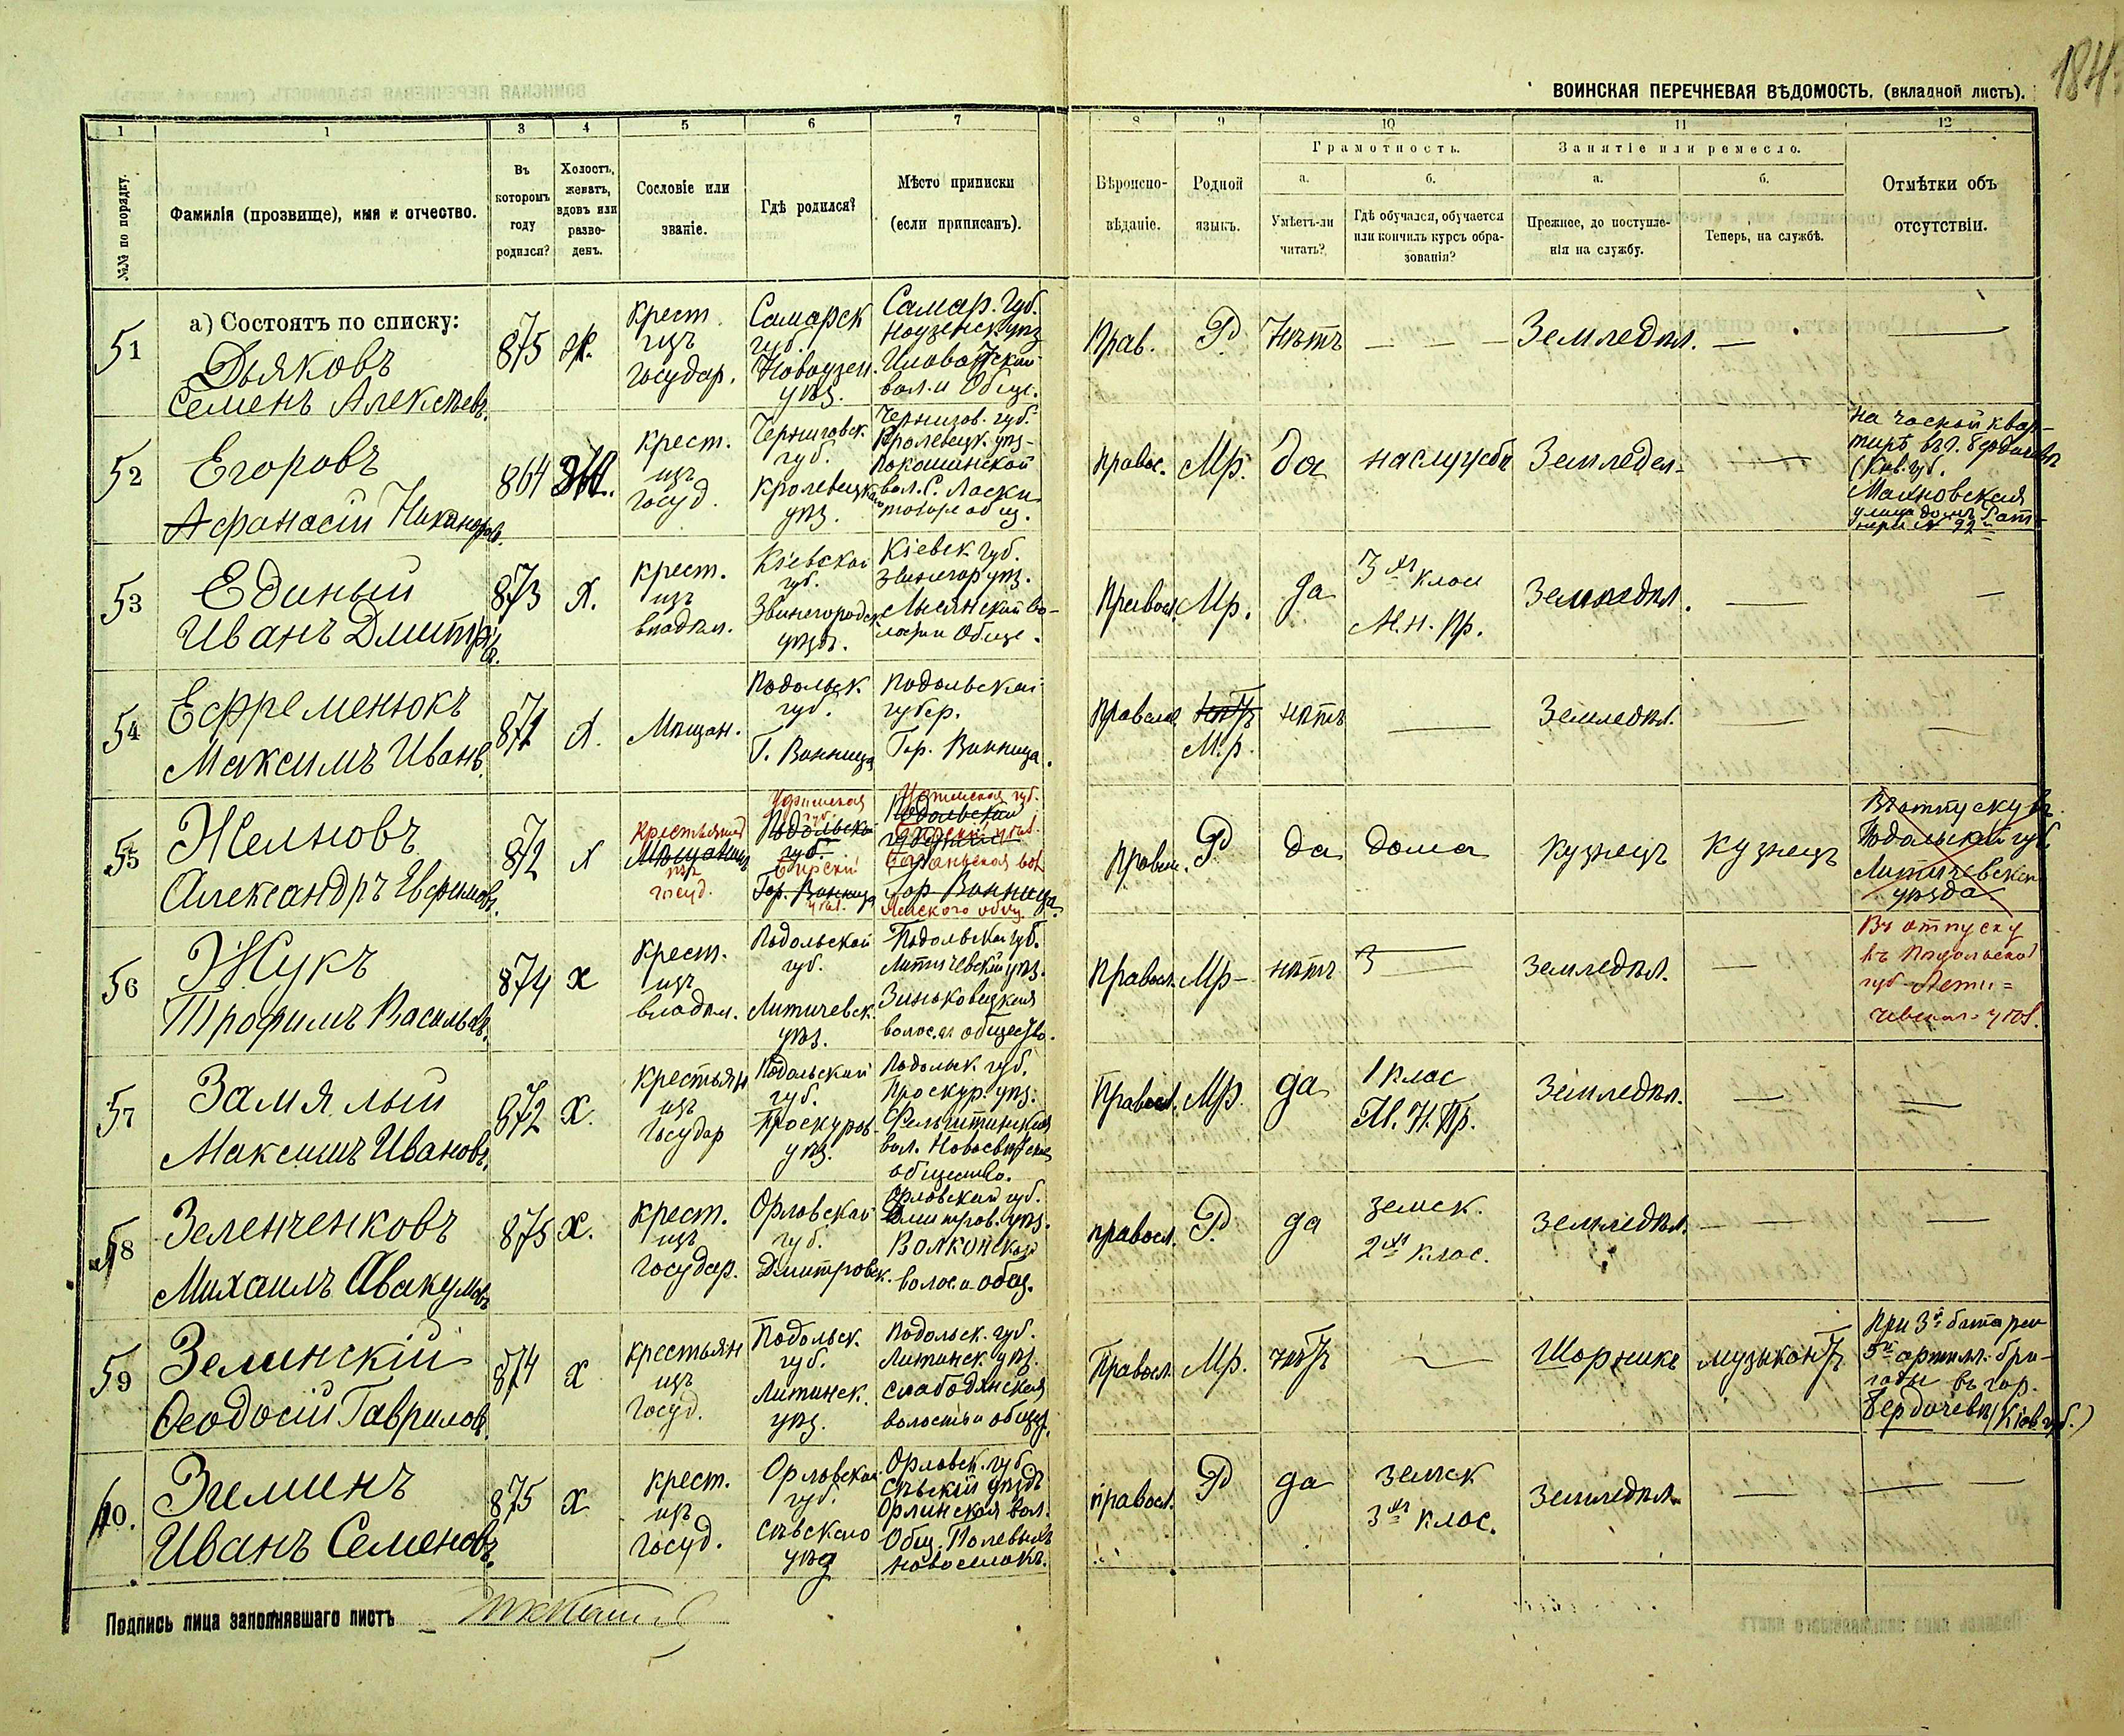 184
ВОИНСКАЯ ПЕРЕЧНЕВАЯ ВѢДОМОСТЬ. (вкладной листъ).
1 1 3 4 5 6 7 8 9 10 11 12
№№ по порядку.
Фамилія (прозвище), имя и отчество.
Въ которомъ году родился?
Холостъ, женатъ, вдовъ или разведенъ.
Сословіе или званіе.
Гдѣ родился?
Мѣсто приписки (если приписанъ).
Вѣроисповѣданіе.
Родной языкъ.
Грамотность.
а. Умѣетъ-ли читать?
б. Гдѣ обучался, обучается или кончилъ курсъ образованія?
Занятіе или ремесло.
а. Прежнее, до поступленія на службу.
б. Теперь, на службѣ.
Отмѣтки объ отсутствіи.
а) Состоятъ по списку:
51
Дьяковъ
Семенъ Алексѣевъ.
875
ж.
крест.
изъ
государ.
Самарск
губ.
Новоузен.
уѣз.
Самар. губ.
вол. и Общ.
Прав.
Р
Нѣтъ
Земледѣл.
52
Егоровъ
Афанасій Никаноров.
864
Ж.
крест.
изъ
госуд.
Черниговск.
губ.
Кролевецка
уѣз.
Чернигов. губ.
Кролевецк. уѣз-
Правос.
Мр.
да
на службѣ
Земледел-
На часной квар-
тирѣ въ г. Бердичевѣ
(Кив. губ.
Махновская
53
Единый
Иванъ Дмитріев.
873
х.
крест.
изъ
владѣл.
Кіевской
губ.
Звенигородск.
уѣзд.
Кіевск губ.
Звенигор уѣз.
Лысянской во-
лости Общ.
Правосл.
Мр.
да
3й клас
М. н. пр.
Земледѣл.
54
Ефременюкъ
Максимъ Иванв.
871
х.
Мѣщан.
Подольск.
губ.
Г. Винница
Подольской
губер.
Гор. Винница.
Правосл.
нѣтъ
М. р.
нѣтъ
Земледѣл.
55
Желновъ
Александръ Ефимовъ.
872
х
Крестьянинъ
Мѣщанинъ
изъ
госуд.
Уфимская
губ.
Подольской
губ.
Бирскій
Гор. Винница
уѣзд.
Уфимская губ.
Подольской
Бирскій уѣзд.
губерніи
Гор. Винница.
Правосл.
Р
да
дома
кузнецъ
кузнецъ
Въ отпуску въ
Подольской губ
Литичевскаго
уѣзда
56
Жукъ
Трофимъ Васильевъ.
874
х
крест.
изъ
владѣл.
Подольской
губ.
Литичевск.
уѣз.
Подольской губ.
Литичевскій уѣз.
Зиньковецкая
волос. и общество.
Правосл.
Мр-
нѣтъ
Земледѣл.
Въ отпуску
въ Подольской
губ. Лети=
чевскаго уѣзд.
57
Замялый
Максимъ Ивановъ.
872
х.
Крестьян
изъ
Государ
Подольский
губ.
Проскуров
уѣз.
Подольск. губ.
Проскур. уѣз.
общество.
Правосл.
Мр.
да
1 клас
М. Н. Пр.
Земледѣл.
58
Зеленченковъ
Михаилъ Авакумовъ
875
х.
крест.
изъ
государ.
Орловской
губ.
Дмитровск.
Орловской губ.
Дмитров. уѣз.
Волконской
волос. и общ.
правосл.
Р
да
земск.
2й клас.
земледѣл.
59
Зелинскій
Ѳеодосій Гаврилов
874
х
крестьян
изъ
госуд.
Подольск.
губ.
Литинск.
уѣз.
Подольск. губ.
Литинск. уѣз.
слабодянская
волость и общ.
Правосл.
Мр.
нѣтъ
Шорникъ
музыкантъ
При 3й батареи
5й артилл. бри-
гады въ гор.
Бердичевѣ (Кіев. губ.)
60.
Зиминъ
Иванъ Семеновъ.
875
х
крест.
изъ
госуд.
Орловской
губ.
Сѣвскаго
уѣзд
Орловск. губ
Сѣвскій уѣздъ
Орлинская вол.
Общ. Полевыхъ
Новоселокъ.
правосл.
Р
да
земск
3й клас.
Земледѣл.
Подпись лица заполнявшаго листъ